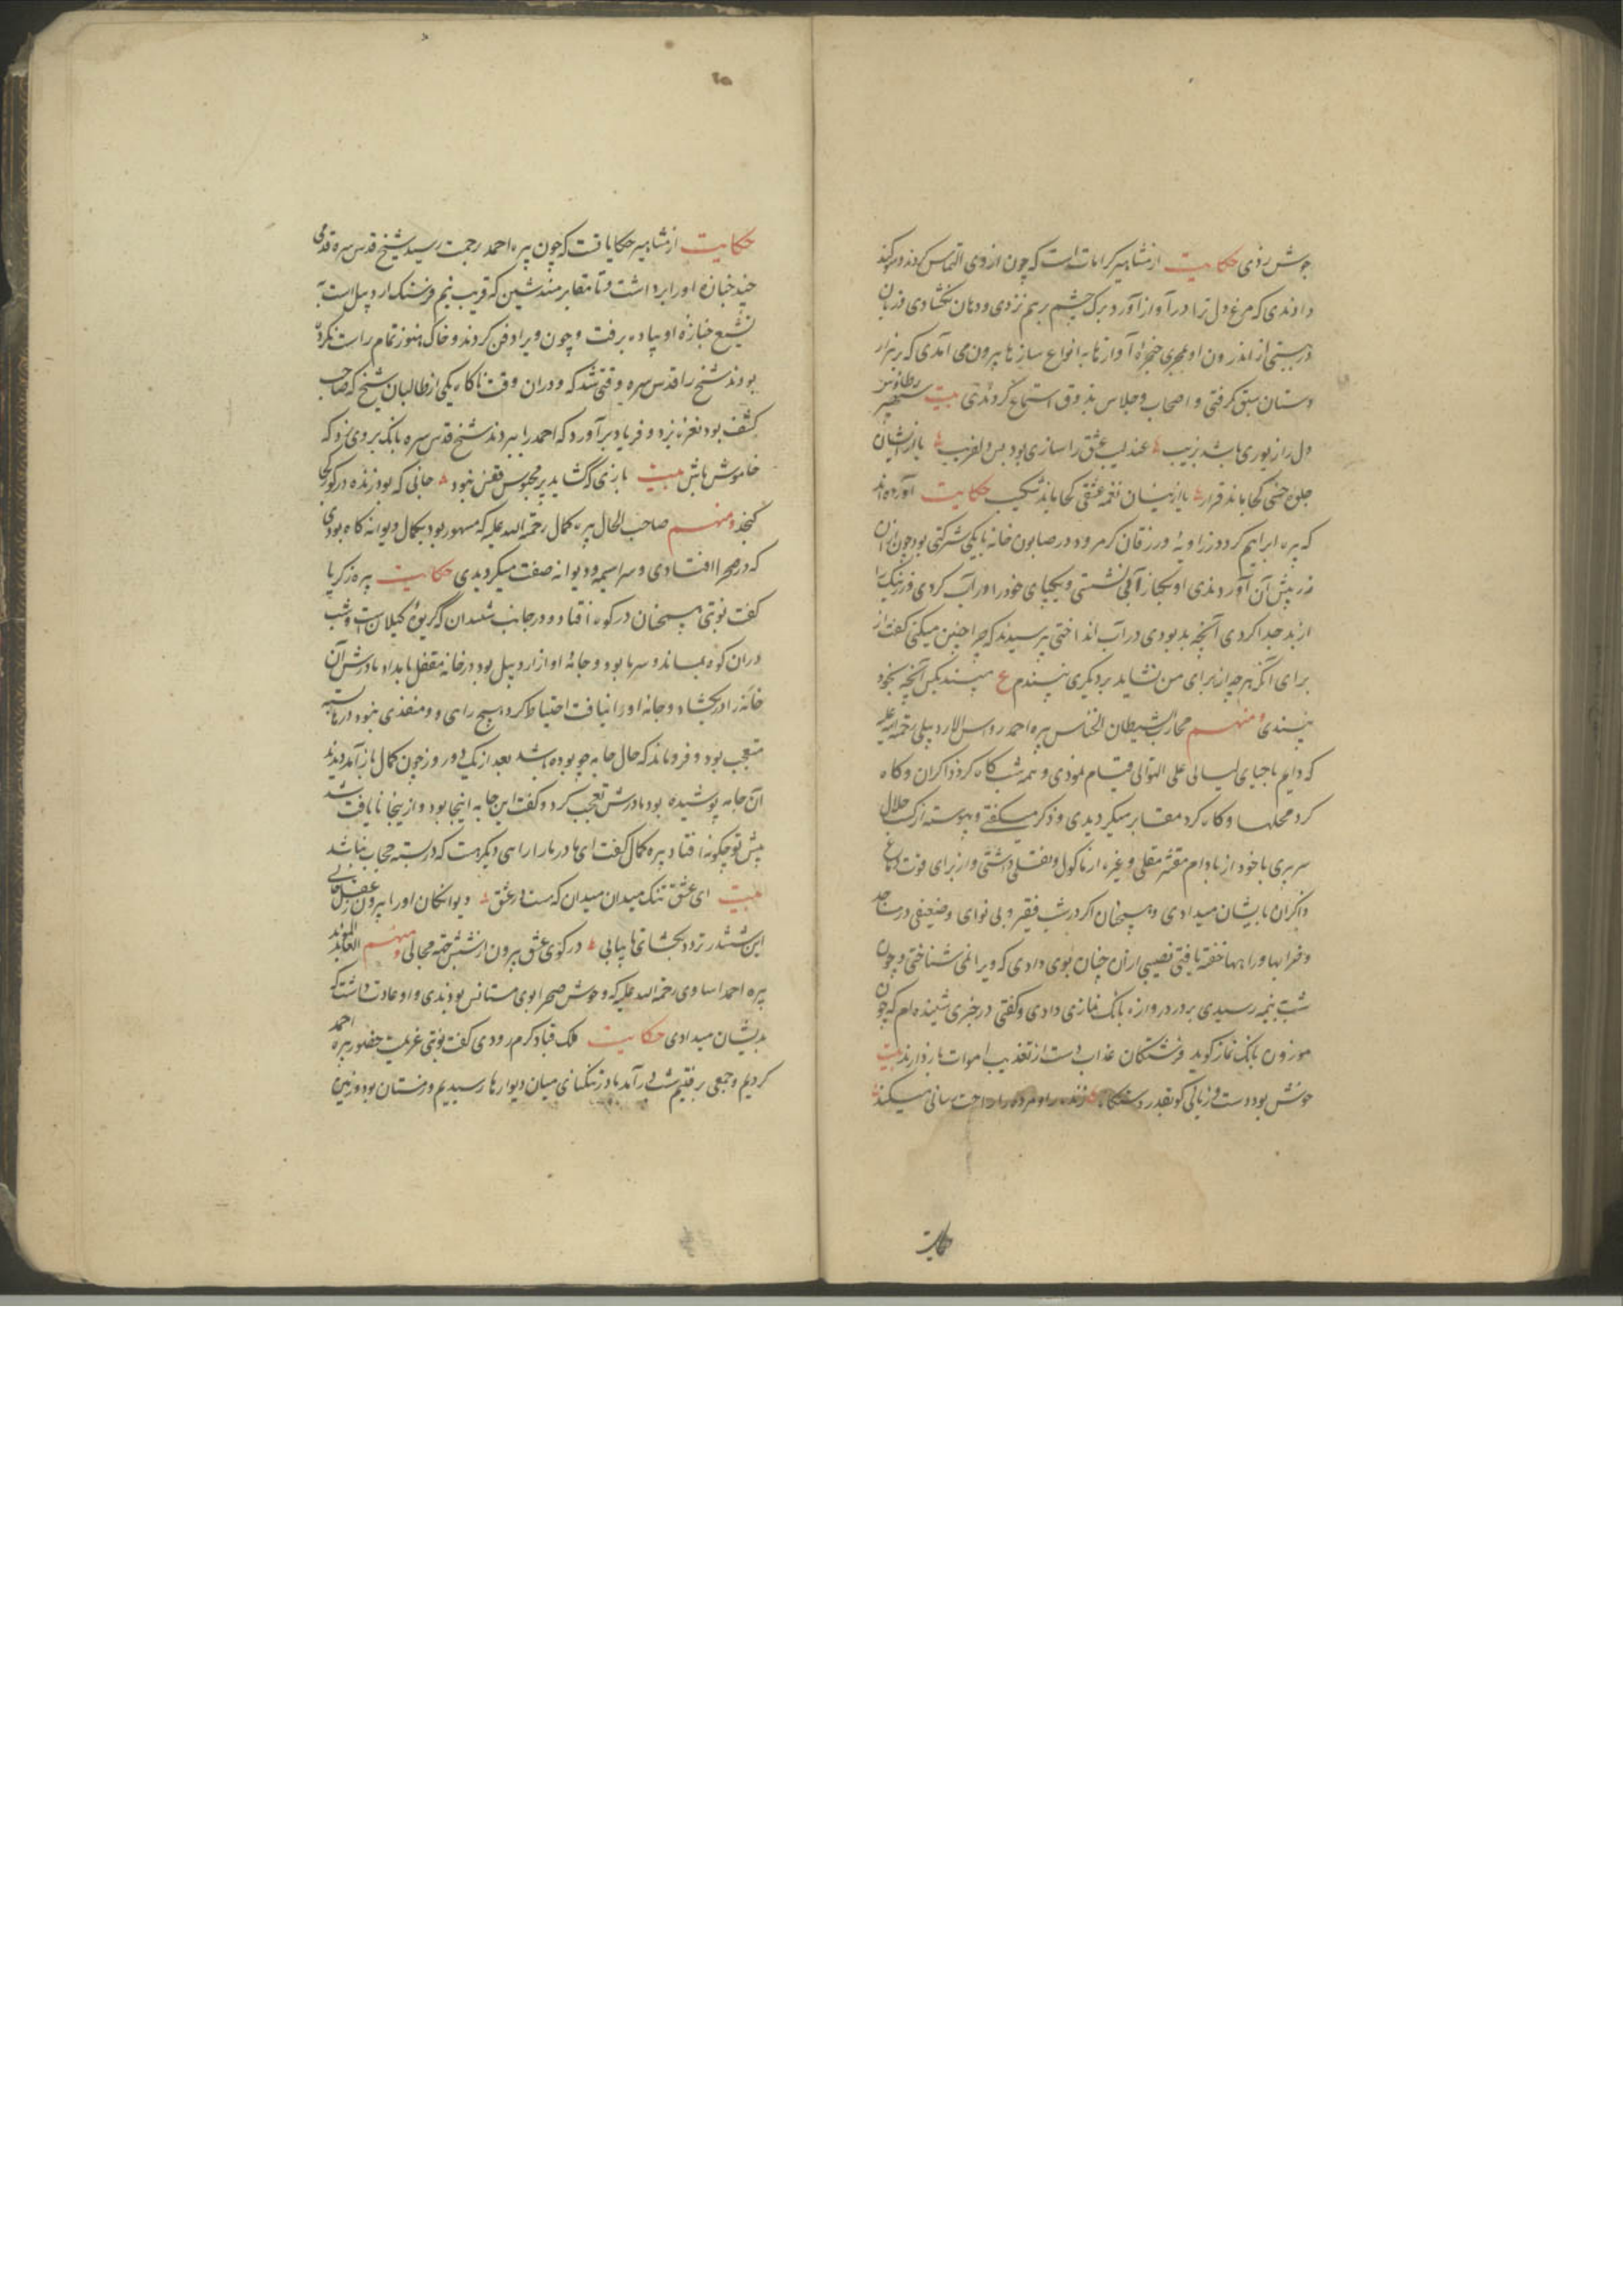 جوش زدی حکایت از مشاهیر کرامات است که چون از وی التماس کردند و سوگند
دادندی که مرغ دل ترا در آواز آورد برک چشم بر هم نزدی و دهان نگشادی و زبان
در بستی از اندرون او مجری حنجرهٔ آوازها به انواع سازها بیرون می آمدی که بر هزار
دستان سبق گرفتی و اصحاب و جلاس بذوق استماع کردندی بیت
دل را زیوری باشد زیب عندلیب عشق را سازی بود بس دلفریب با از ایشان
جلوهٔ حسنی کجا ماند قرار با از اینسان نغمه عشقی کجا ماند شکیب حکایت آورده اند
که پیره ابراهیم کرد در زاویهٔ ورزقان کرمرود در صابون خانه با یکی شرکتی بود چون از آن
زر پیش آن آوردندی او بکنار آبی نشستی و یکجای خود را در آب کردی و زر نیک را
از بد جدا کردی آنچه بد بودی در آب انداختی پرسیدند که چرا چنین میکنی گفت از
برای آنکه هر چه از برای من نشاید بر دیگری نپسندم ع مپسند بکس آنچه بخود
نپسندی و منهم محارب الشیطان الخناس پیره احمد رواس الاردبیلی رحمة الله علیه
که دایم باحیای لیالی علی التوالی قیام نمودی و همه شب گاه گرد ذاکران و گاه
گرد محلها و گاه گرد مقابر میگردیدی و ذکر میگفتی و پیوسته از کسب حلال
سربری با خود از بادام مقشر مقلی و غیره از ماکول و نقلی داشتی و از برای قوت دماغ
ذاکران بایشان میدادی و همچنان اگر در شب فقیر و بی نوای و ضعیفی در مساجد
و خرابها و راهها خفته یافتی نصیبی از آن چنان بوی دادی که ویرا نمی شناختی و چون
شب بنیمه رسیدی بر در دروازه بانک نمازی دادی و گفتی در خبری شنیده ام که چون
موزون بانک نماز گوید فرشتگان عذاب دست از تعذیب اموات بازدارند بیت
خوش بود دست و زبانی کو بقدر دستگاه زنده را و مرده را راحت رسانی میکند
حکایت
حکایت از مشاهیر حکایاتست که چون پیره احمد رحمت رسید شیخ قدس سره قدمی
چند جنازهٔ او را برداشت و تا مقابر مندشین که قریب نیم فرسنگ اردبیل است به
تشییع جنازهٔ او پیاده برفت و چون ویرا دفن کردند و خاک هنوز تمام راست نکرده
بودند شیخ را قدس سره وقتی شد که در آن وقت ناگاه یکی از طالبان شیخ که صاحب
کشف بود نعره بزد و فریاد برآورد که احمد را ببردند شیخ قدس سره بانک بر وی زد که
خاموش باش بیت بازی که گشاید پر محبوس قفس نبود جانی که بود زنده در گور کجا
گنجد و منهم صاحب الحال پیره کمال رحمة الله علیه که مشهور بود بکمال دیوانه گاه بودی
که در صحرا افتادی و سراسیمه و دیوانه صفت میگردیدی حکایت پیره زکریا
گفت نوبتی همچنان در کوه افتاد و در جانب شندان که گریوهٔ گیلانست و شب
در آن کوه بماند و سرما بود و جامهٔ او از اردبیل بود در خانه مقفل بامداد مادرش آن
خانه را در بگشاد و جامه او را نیافت احتیاط کرد هیچ راهی و منفذی نبود درها بسته
متعجب بود و فرو ماند که حال جامه چو بوده باشد بعد از یک دو روز چون کمال باز آمد دیدند
آن جامه پوشیده بود مادرش تعجب کرد و گفت این جامه اینجا بود و از ینجا نایافت شد
پیش تو چگونه افتاد پیره کمال گفت ای مادر ما را راهی دیگر هست که در بسته حجاب نباشد
بیت ای عشق تنک میدان میدان که هست در عشق دیوانگان او را بیرون ز عقل حالی
این ششدر تردد بگشای تا بیابی در کوی عشق بیرون از شش جهة مجالی و منهم العابد
پیره احمد اساوی رحمة الله علیه که وحوش صحرا بوی مستانس بودندی و او عادت داشت که
بدیشان میدادی حکایت ملک قباد کرمرودی گفت نوبتی عزیمت حضور پیره احمد
کردیم و جمعی برفتیم شب در آمد بادر تنگنای میان دیوارها رسیدیم و زمستان بود و زمین